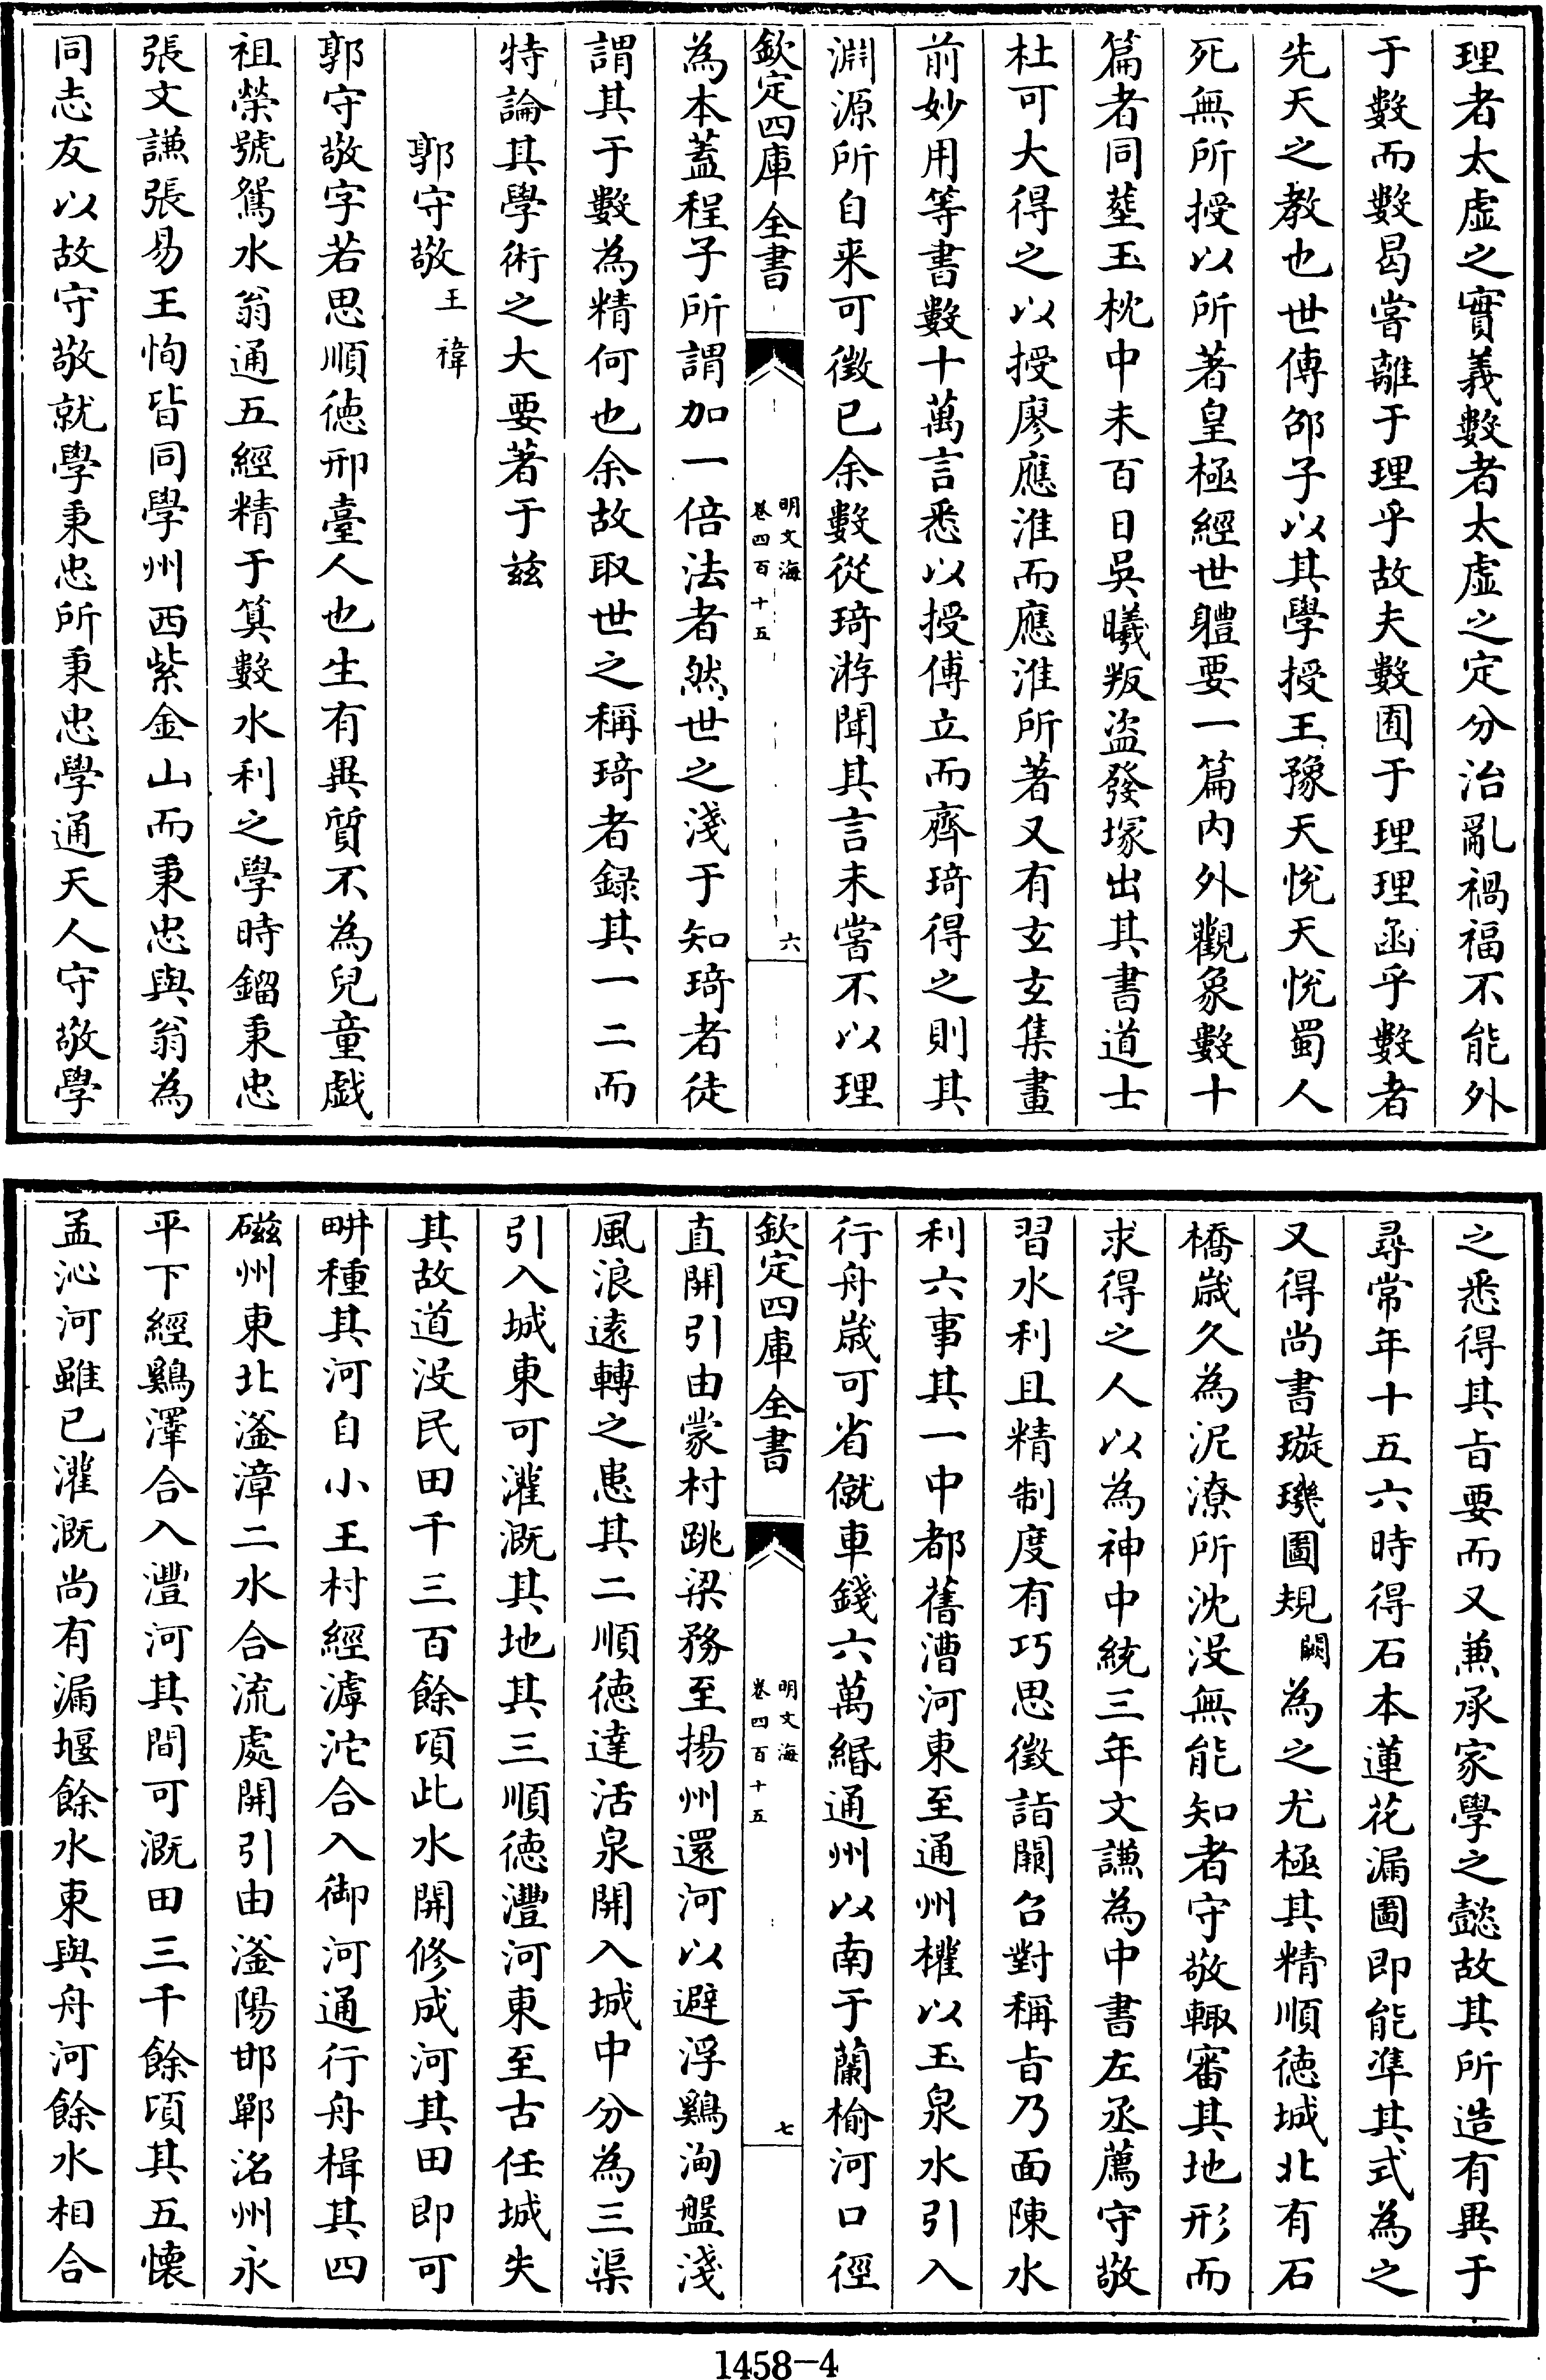 理者太虛之實義數者太虛之定分治亂禍福不能外
于數而數曷嘗離于理乎故夫數囿于理理函乎數者
先天之教也世傳邵子以其學授王豫天悅天悅蜀人
死無所授以所著皇極經世體要一篇内外觀象數十
篇者同塟玉枕中未百日吳曦叛盜發塚出其書道士
杜可大得之以授廖應淮而應淮所著又有玄玄集畫
前妙用等書數十萬言悉以授傅立而齊琦得之則其
淵源所自来可徵已余數從琦游聞其言未嘗不以理
欽定四庫全書
明文海
卷四百十五
六
為本蓋程子所謂加一倍法者然世之淺于知琦者徒
謂其于數為精何也余故取世之稱琦者録其一二而
特論其學術之大要著于兹
郭守敬王禕
郭守敬字若思順徳邢臺人也生有異質不為兒童戯
祖榮號鴛水翁通五經精于算數水利之學時鎦秉忠
張文謙張易王恂皆同學州西紫金山而秉忠與翁為
同志友以故守敬就學秉忠所秉忠學通天人守敬學
之悉得其旨要而又兼承家學之懿故其所造有異于
尋常年十五六時得石本蓮花漏圖即能準其式為之
又得尚書璇璣圖規闕為之尤極其精順徳城北有石
橋歳久為泥潦所沈没無能知者守敬輙審其地形而
求得之人以為神中統三年文謙為中書左丞薦守敬
習水利且精制度有巧思徵詣闕召對稱旨乃面陳水
利六事其一中都舊漕河東至通州榷以玉泉水引入
行舟歳可省僦車錢六萬緡通州以南于蘭榆河口徑
欽定四庫全書
明文海
卷四百十五
七
直開引由蒙村跳梁務至揚州還河以避浮鷄洵盤淺
風浪逺轉之患其二順徳達活泉開入城中分為三渠
引入城東可灌溉其地其三順徳灃河東至古任城失
其故道没民田千三百餘項此水開修成河其田即可
畊種其河自小王村經滹沱合入御河通行舟楫其四
磁州東北滏漳二水合流處開引由滏陽邯鄲洺州永
平下經鷄澤合入灃河其間可溉田三千餘頃其五懐
孟沁河雖已灌溉尚有漏堰餘水東與舟河餘水相合
1458-4